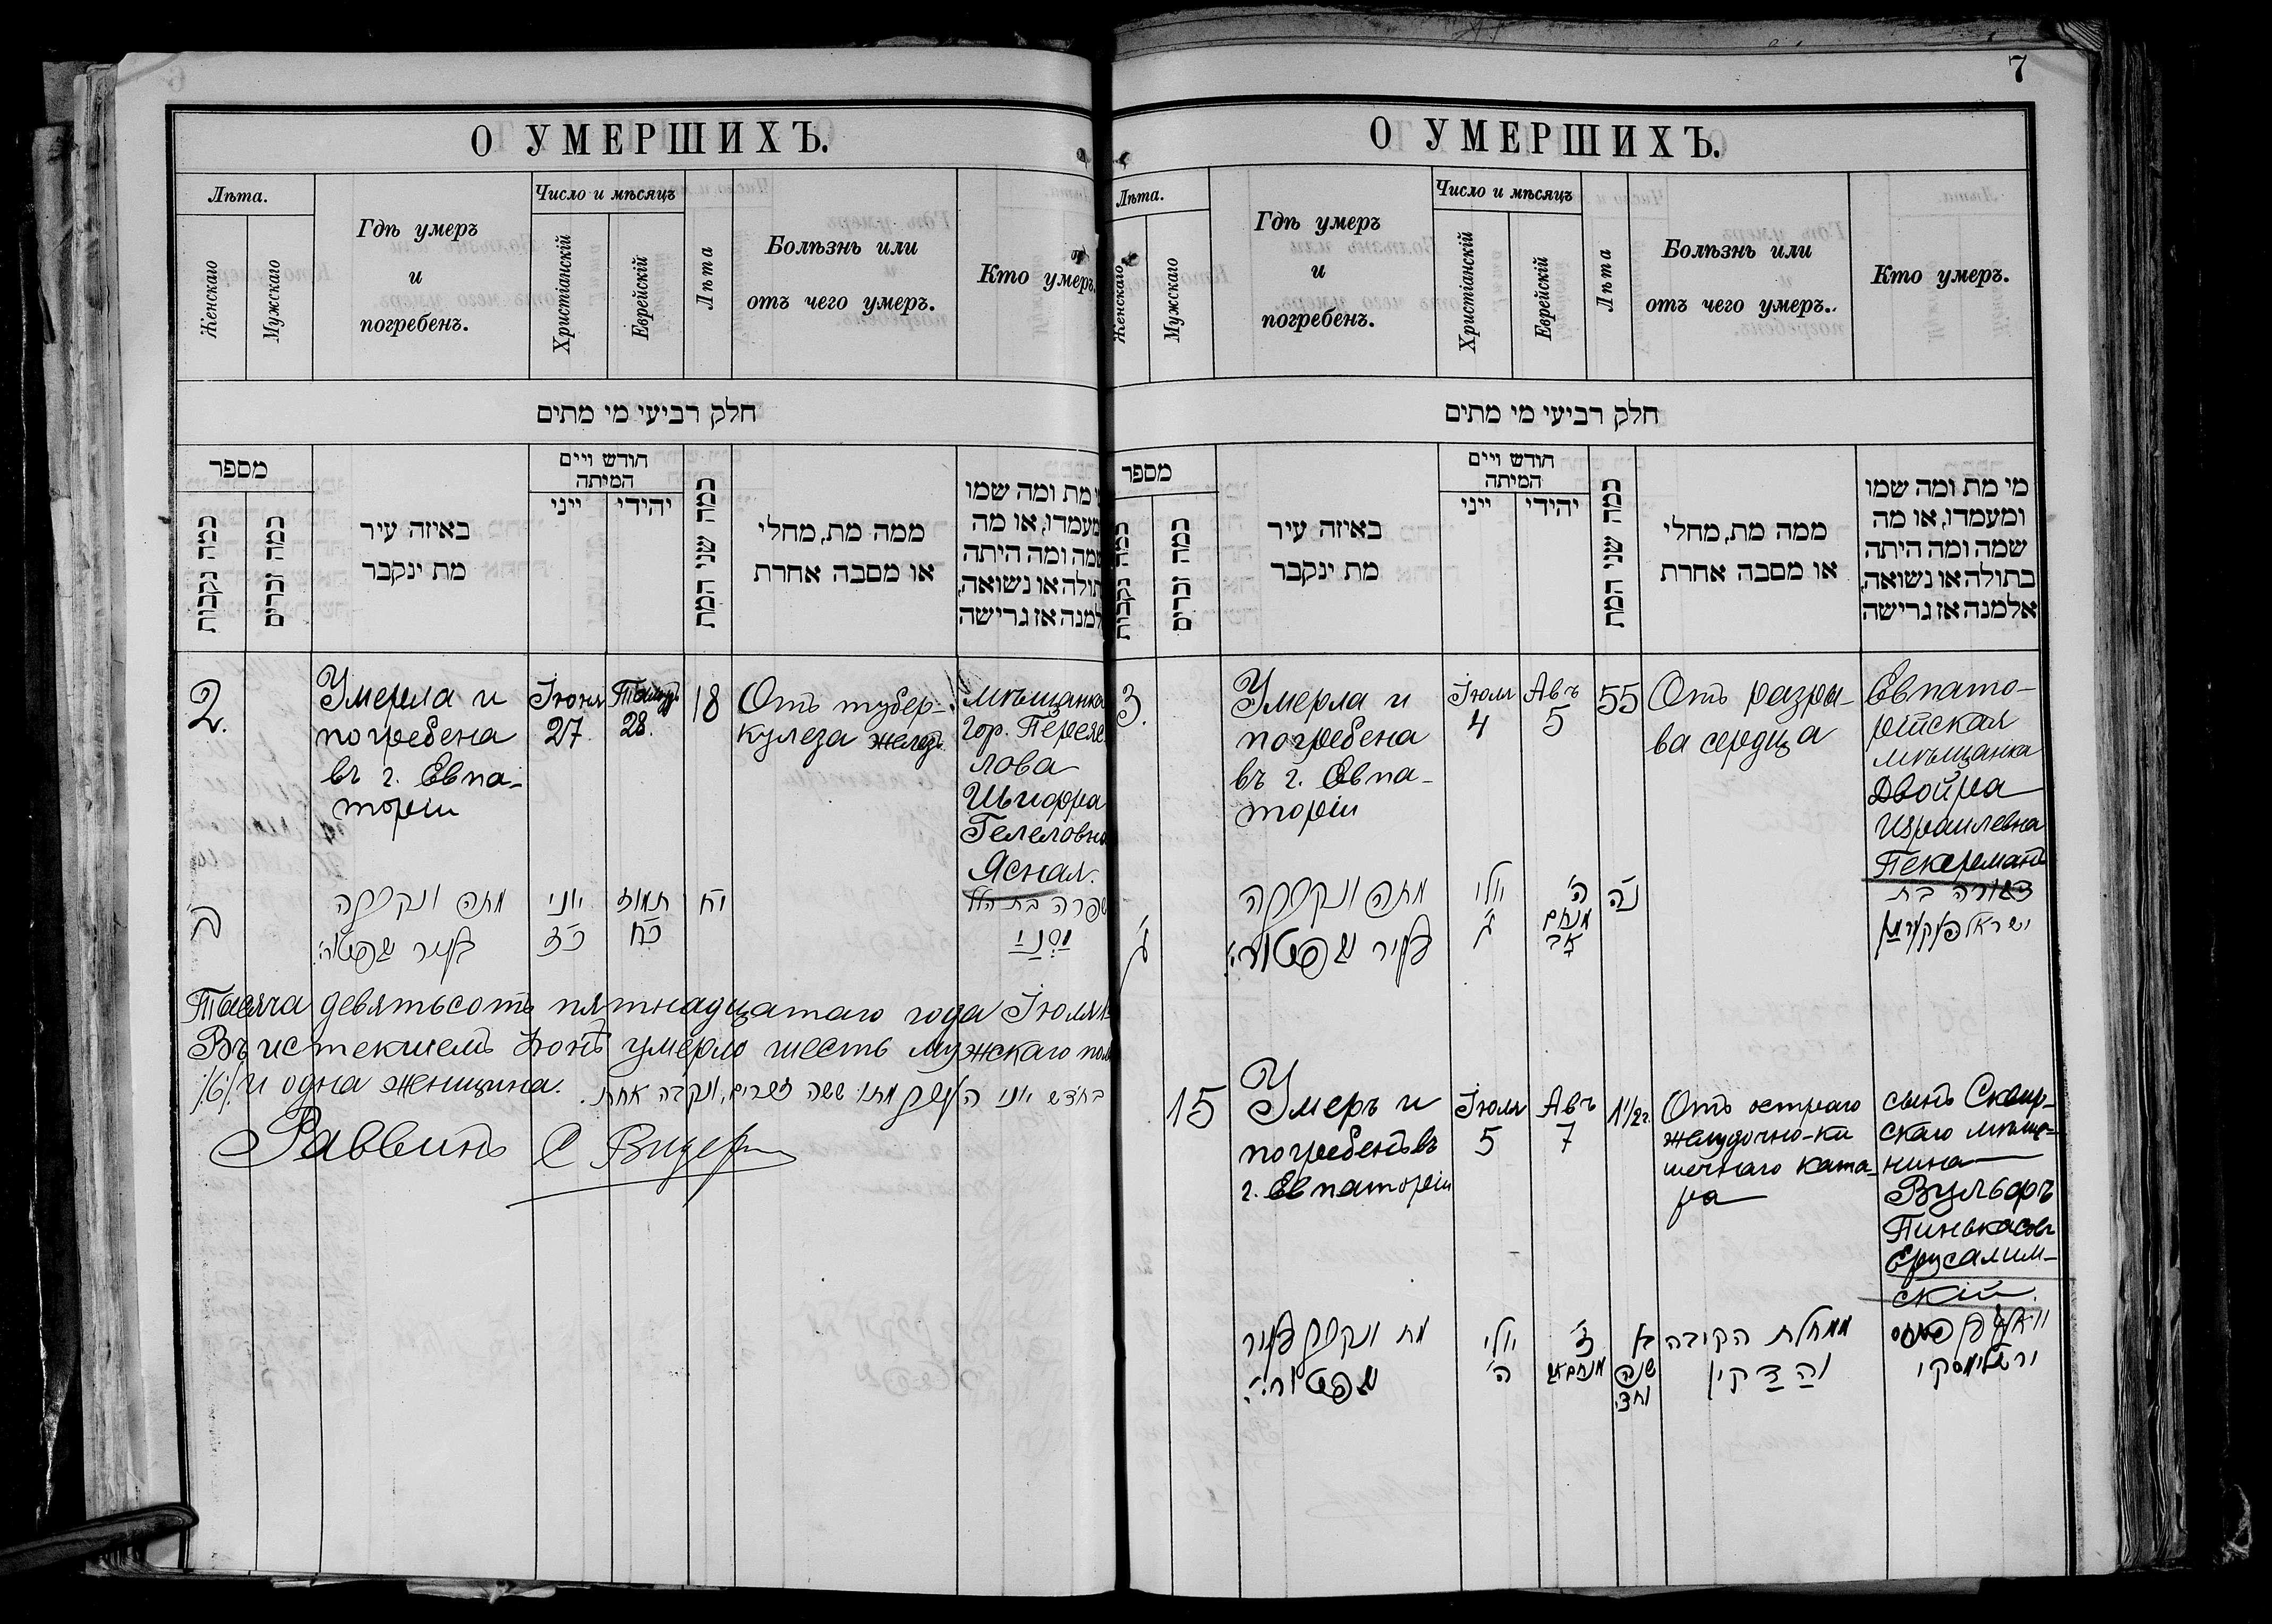 О УМЕРШИХЪ.
Лѣта.
Женскаго
Мужскаго
Гдѣ умеръ
и
погребенъ.
Число и мѣсяцъ
Христіанскій
Еврейскій
Лѣта
Болѣзнь или
отъ чего умеръ.
Кто умеръ.
חלק רביעי מי מתים
מספר
כמה נקבות
כמה זכרים
באיזה עיר
מת ינקבר
חודש ויים
המיתה
ייני
יהידי
כמה שני המת
ממה מת, מחלי
או מסבה אחרת
מת ומה שמו
ומעמדו, או מה
שמה ומה היתה
בתולה או נשואה,
אלמנה אז גרישה
2.
Умерла и
погребена
въ г. Евпа-
торіи
Іюня
27
28.
18
Отъ тубер-
кулеза желез
мѣщанка
гор. Переяс
лова
Шифра
Гелеловна
Ясная.
ב
מתה ונקברה
בעיר
יוני
כז
תמוז
כח
יח
שפרה בת הלל
יסניי
Тысяча девятьсотъ пятнадцатаго года Іюля
Въ истекшемъ Іюнѣ умерло шесть мужскаго пол
/6/ и одна женщина.
בחדש יוני העבר מתו ששה זכרים, ונקבה אחת.
Раввинъ
7
О УМЕРШИХЪ.
Лѣта.
Женскаго
Мужскаго
Гдѣ умеръ
и
погребенъ.
Число и мѣсяцъ
Христіанскій
Еврейскій
Лѣта
Болѣзнь или
отъ чего умеръ.
Кто умеръ.
חלק רביעי מי מתים
מספר
כמה נקבות
כמה זכרים
באיזה עיר
מת ינקבר
חודש ויים
המיתה
ייני
יהידי
כמה שני המת
ממה מת, מחלי
או מסבה אחרת
מי מת ומה שמו
ומעמדו, או מה
שמה ומה היתה
בתולה או נשואה,
אלמנה אז גרישה
3.
Умерла и
погребена
въ г. Евпа-
торіи
Іюля
4
Авъ
5
55
Отъ разры-
ва сердца
Евпато-
рійская
мѣщанка
Двойра
Израилевна
Пекерманъ
ג
מתה ונקברה
בעיר
יולי
ד
ה'
מנחם
אב
נה
בת
ישראל
15
Умеръ и
погребенъ въ
г. Евпаторіи
Іюля
5
Авъ
7
1½ г.
Отъ остраго
желудочно-ки
шечнаго ката-
ра
сынъ Сквир-
скаго мѣща-
нина
Вульфъ
Пиньхасовъ
Ерусалим-
скій.
מת ונקבר בעיר
יולי
ה'
ז'
מנחם אב
שנה
וחצי
ממחלת הקובה
והדקין
וואלף
ירשלימסקי